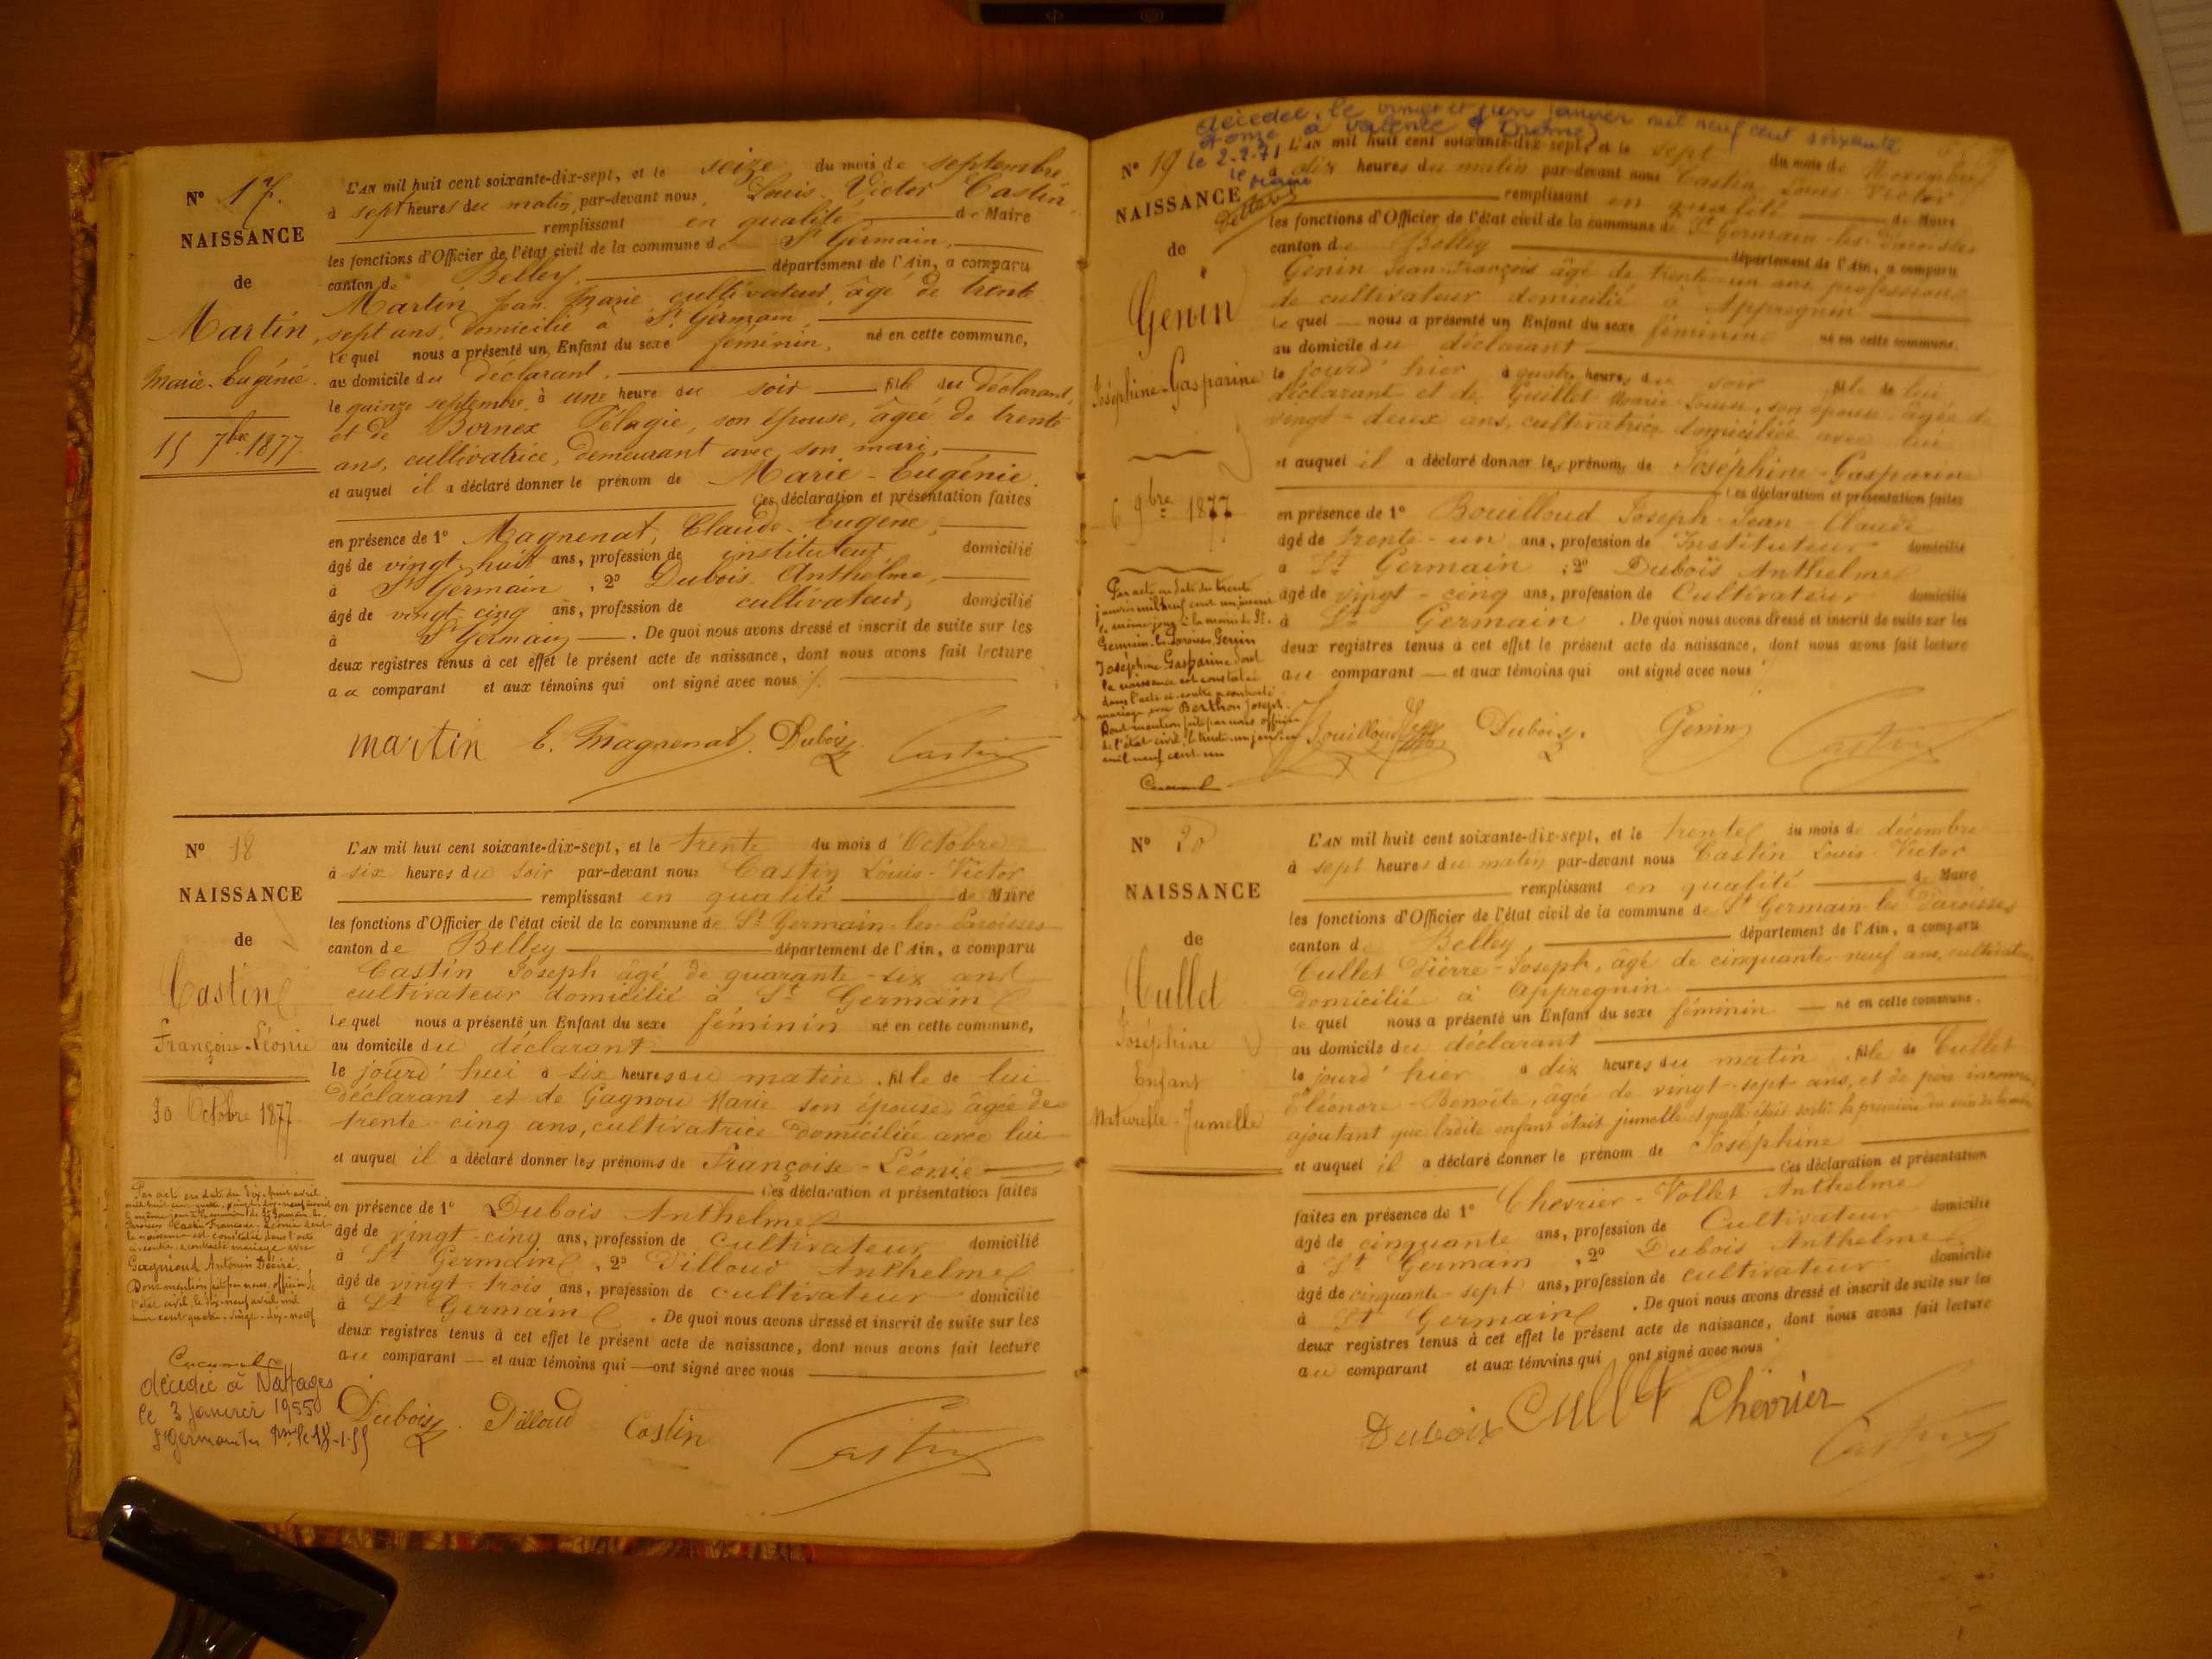 N° 17.
NAISSANCE
de
Martin,
Marie-Eugénie.
15 7bre 1877.
L'AN mil huit cent soixante-dix-sept, et le seize du mois de septembre
à sept heures du matin, par-devant nous, Louis-Victor Castin,
remplissant en qualité de Maire
les fonctions d'Officier de l'état civil de la commune de St Germain,
canton de Belley, département de l'Ain, a comparu
Martin Jean Marie cultivateur, âgé de trente
sept ans, domicilié à St Germain,
Lequel nous a présenté un Enfant du sexe féminin, né en cette commune,
au domicile du déclarant.
le quinze septembre, à une heure du soir fille du déclarant,
et de Bornex Pélagie, son épouse, âgée de trente
ans, cultivatrice, demeurant avec son mari,
et auquel il a déclaré donner le prénom de Marie-Eugénie.
Ces déclaration et présentation faites
en présence de 1° Magnenat, Claude-Eugène,
âgé de vingt-huit ans, profession de instituteur, domicilié
à St Germain, 2° Dubois Anthelme,
âgé de vingt cinq ans, profession de cultivateur, domicilié
à St Germain. De quoi nous avons dressé et inscrit de suite sur les
deux registres tenus à cet effet le présent acte de naissance, dont nous avons fait lecture
au comparant et aux témoins qui ont signé avec nous
martin E. Magnenat. Dubois Castin
N° 18
NAISSANCE
de
Castin
Françoise-Léonie
30 Octobre 1877
L'AN mil huit cent soixante-dix-sept, et le trente du mois d'Octobre
à six heures du soir par-devant nous Castin Louis-Victor
remplissant en qualité de Maire
les fonctions d'Officier de l'état civil de la commune de St Germain-les-Paroisses
canton de Belley département de l'Ain, a comparu
Castin Joseph âgé de quarante-six ans
cultivateur domicilié à St Germain
Lequel nous a présenté un Enfant du sexe féminin né en cette commune,
au domicile du déclarant
le jourd'hui à six heures du matin fille de lui
déclarant et de Gagnou Marie son épouse âgée de
trente-cinq ans, cultivatrice domiciliée avec lui
et auquel il a déclaré donner les prénoms de Françoise-Léonie
Ces déclaration et présentation faites
en présence de 1° Dubois Anthelme
âgé de vingt-cinq ans, profession de cultivateur domicilié
à St Germain, 2° Pilloud Anthelme
âgé de vingt-trois ans, profession de cultivateur domicilié
à St Germain. De quoi nous avons dressé et inscrit de suite sur les
deux registres tenus à cet effet le présent acte de naissance, dont nous avons fait lecture
au comparant et aux témoins qui ont signé avec nous
Castin Françoise-Léonie dont
la naissance est constatée dans l'acte
ci-contre a contracté mariage avec
Gagnioud Antonin Désiré.
Dont mention faite par nous, officier de
l'état civil, le dix-neuf avril mil
décédée à Nattages
le 3 janvier 1955
Dubois Pilloud Castin Castin
décédée, le vingt et un janvier mil neuf cent soixante
onze à Valence (Drôme)
le 2-2-71
N° 19
NAISSANCE
de
Genin
Joséphine-Gasparine
6 9bre 1877
L'AN mil huit cent soixante-dix-sept, et le sept du mois de Novembre
à dix heures du matin par-devant nous Castin Louis-Victor
remplissant en qualité de Maire
les fonctions d'Officier de l'état civil de la commune de St Germain-les-Paroisses
canton de Belley département de l'Ain, a comparu
Genin Jean-François âgé de trente-un ans profession
de cultivateur domicilié à Appregnin
Lequel nous a présenté un Enfant du sexe féminin né en cette commune,
au domicile du déclarant
le jourd'hier à quatre heures du soir fille de lui
déclarant et de Guillet Marie-Louise, son épouse âgée de
vingt-deux ans, cultivatrice domiciliée avec lui
et auquel il a déclaré donner les prénoms de Joséphine-Gasparine
Ces déclaration et présentation faites
en présence de 1° Bouilloud Joseph-Jean-Claude
âgé de trente-un ans, profession de Instituteur domicilié
à St Germain, 2° Dubois Anthelme
âgé de vingt-cinq ans, profession de Cultivateur domicilié
à St Germain. De quoi nous avons dressé et inscrit de suite sur les
deux registres tenus à cet effet le présent acte de naissance, dont nous avons fait lecture
au comparant et aux témoins qui ont signé avec nous
Par acte en date du trente
janvier mil neuf cent un inscrit
le même jour à la mairie de St
Germain-les-Paroisses, Genin
Joséphine Gasparine dont
la naissance est constatée
dans l'acte ci-contre a contracté
mariage avec Berthon Joseph.
Dont mention faite par nous officier
de l'état civil, le trente-un janvier
mil neuf cent un
Bouilloud Dubois Genin Castin
N° 20
NAISSANCE
de
Cullet
Joséphine
Enfant
Naturelle-Jumelle
L'AN mil huit cent soixante-dix-sept, et le trente du mois de décembre
à sept heures du matin par-devant nous Castin Louis-Victor
remplissant en qualité de Maire
les fonctions d'Officier de l'état civil de la commune de St Germain-les-Paroisses
canton de Belley département de l'Ain, a comparu
Cullet Pierre-Joseph, âgé de cinquante-neuf ans, cultivateur
domicilié à Appregnin
lequel nous a présenté un Enfant du sexe féminin né en cette commune,
au domicile du déclarant
le jourd'hier à dix heures du matin, fille de Cullet
Eléonore-Benoîte, âgée de vingt-sept ans, et de père inconnu
ajoutant que ladite enfant était jumelle et qu'elle était sortie la première du sein de la mère
et auquel il a déclaré donner le prénom de Joséphine
Ces déclaration et présentation
faites en présence de 1° Chevrier-Vollet Anthelme
âgé de cinquante ans, profession de Cultivateur domicilié
à St Germain, 2° Dubois Anthelme
âgé de cinquante-sept ans, profession de cultivateur domicilié
à St Germain. De quoi nous avons dressé et inscrit de suite sur les
deux registres tenus à cet effet le présent acte de naissance, dont nous avons fait lecture
au comparant et aux témoins qui ont signé avec nous
Dubois Cullet Chevrier
Castin